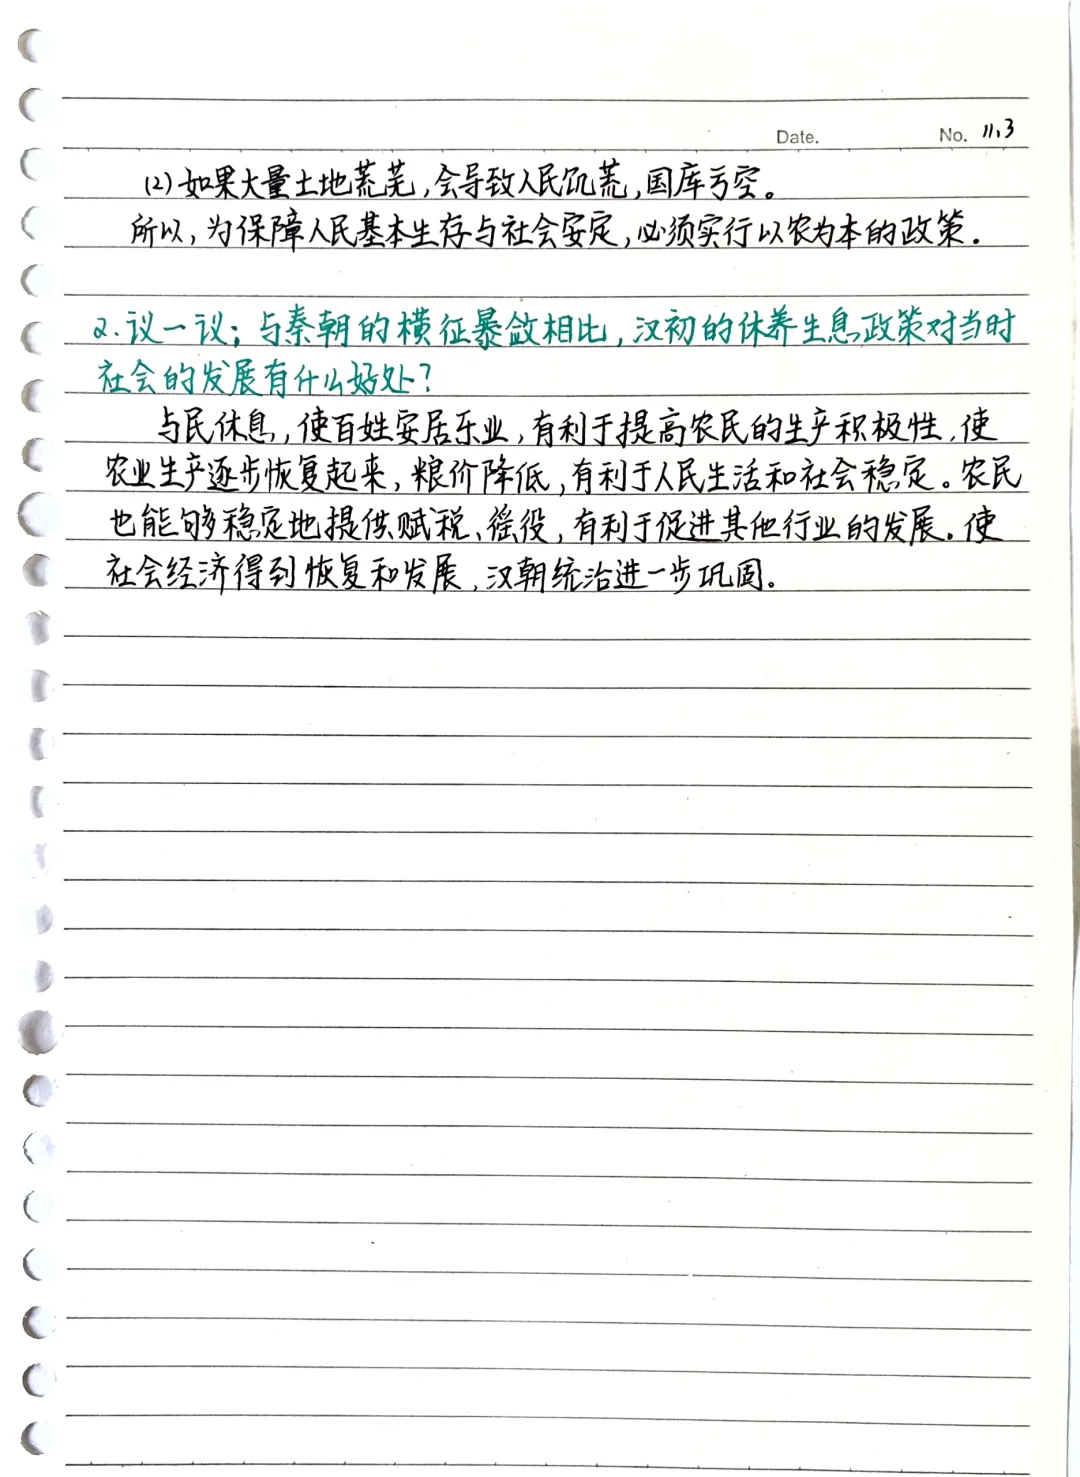 Date. No. 11.3
(2)如果大量土地荒芜,会导致人民饥荒,国库亏空。
所以,为保障人民基本生存与社会安定,必须实行以农为本的政策。
2.议一议;与秦朝的横征暴敛相比,汉初的休养生息政策对当时
社会的发展有什么好处?
与民休息,使百姓安居乐业,有利于提高农民的生产积极性,使
农业生产逐步恢复起来,粮价降低,有利于人民生活和社会稳定。农民
也能够稳定地提供赋税、徭役,有利于促进其他行业的发展。使
社会经济得到恢复和发展,汉朝统治进一步巩固。